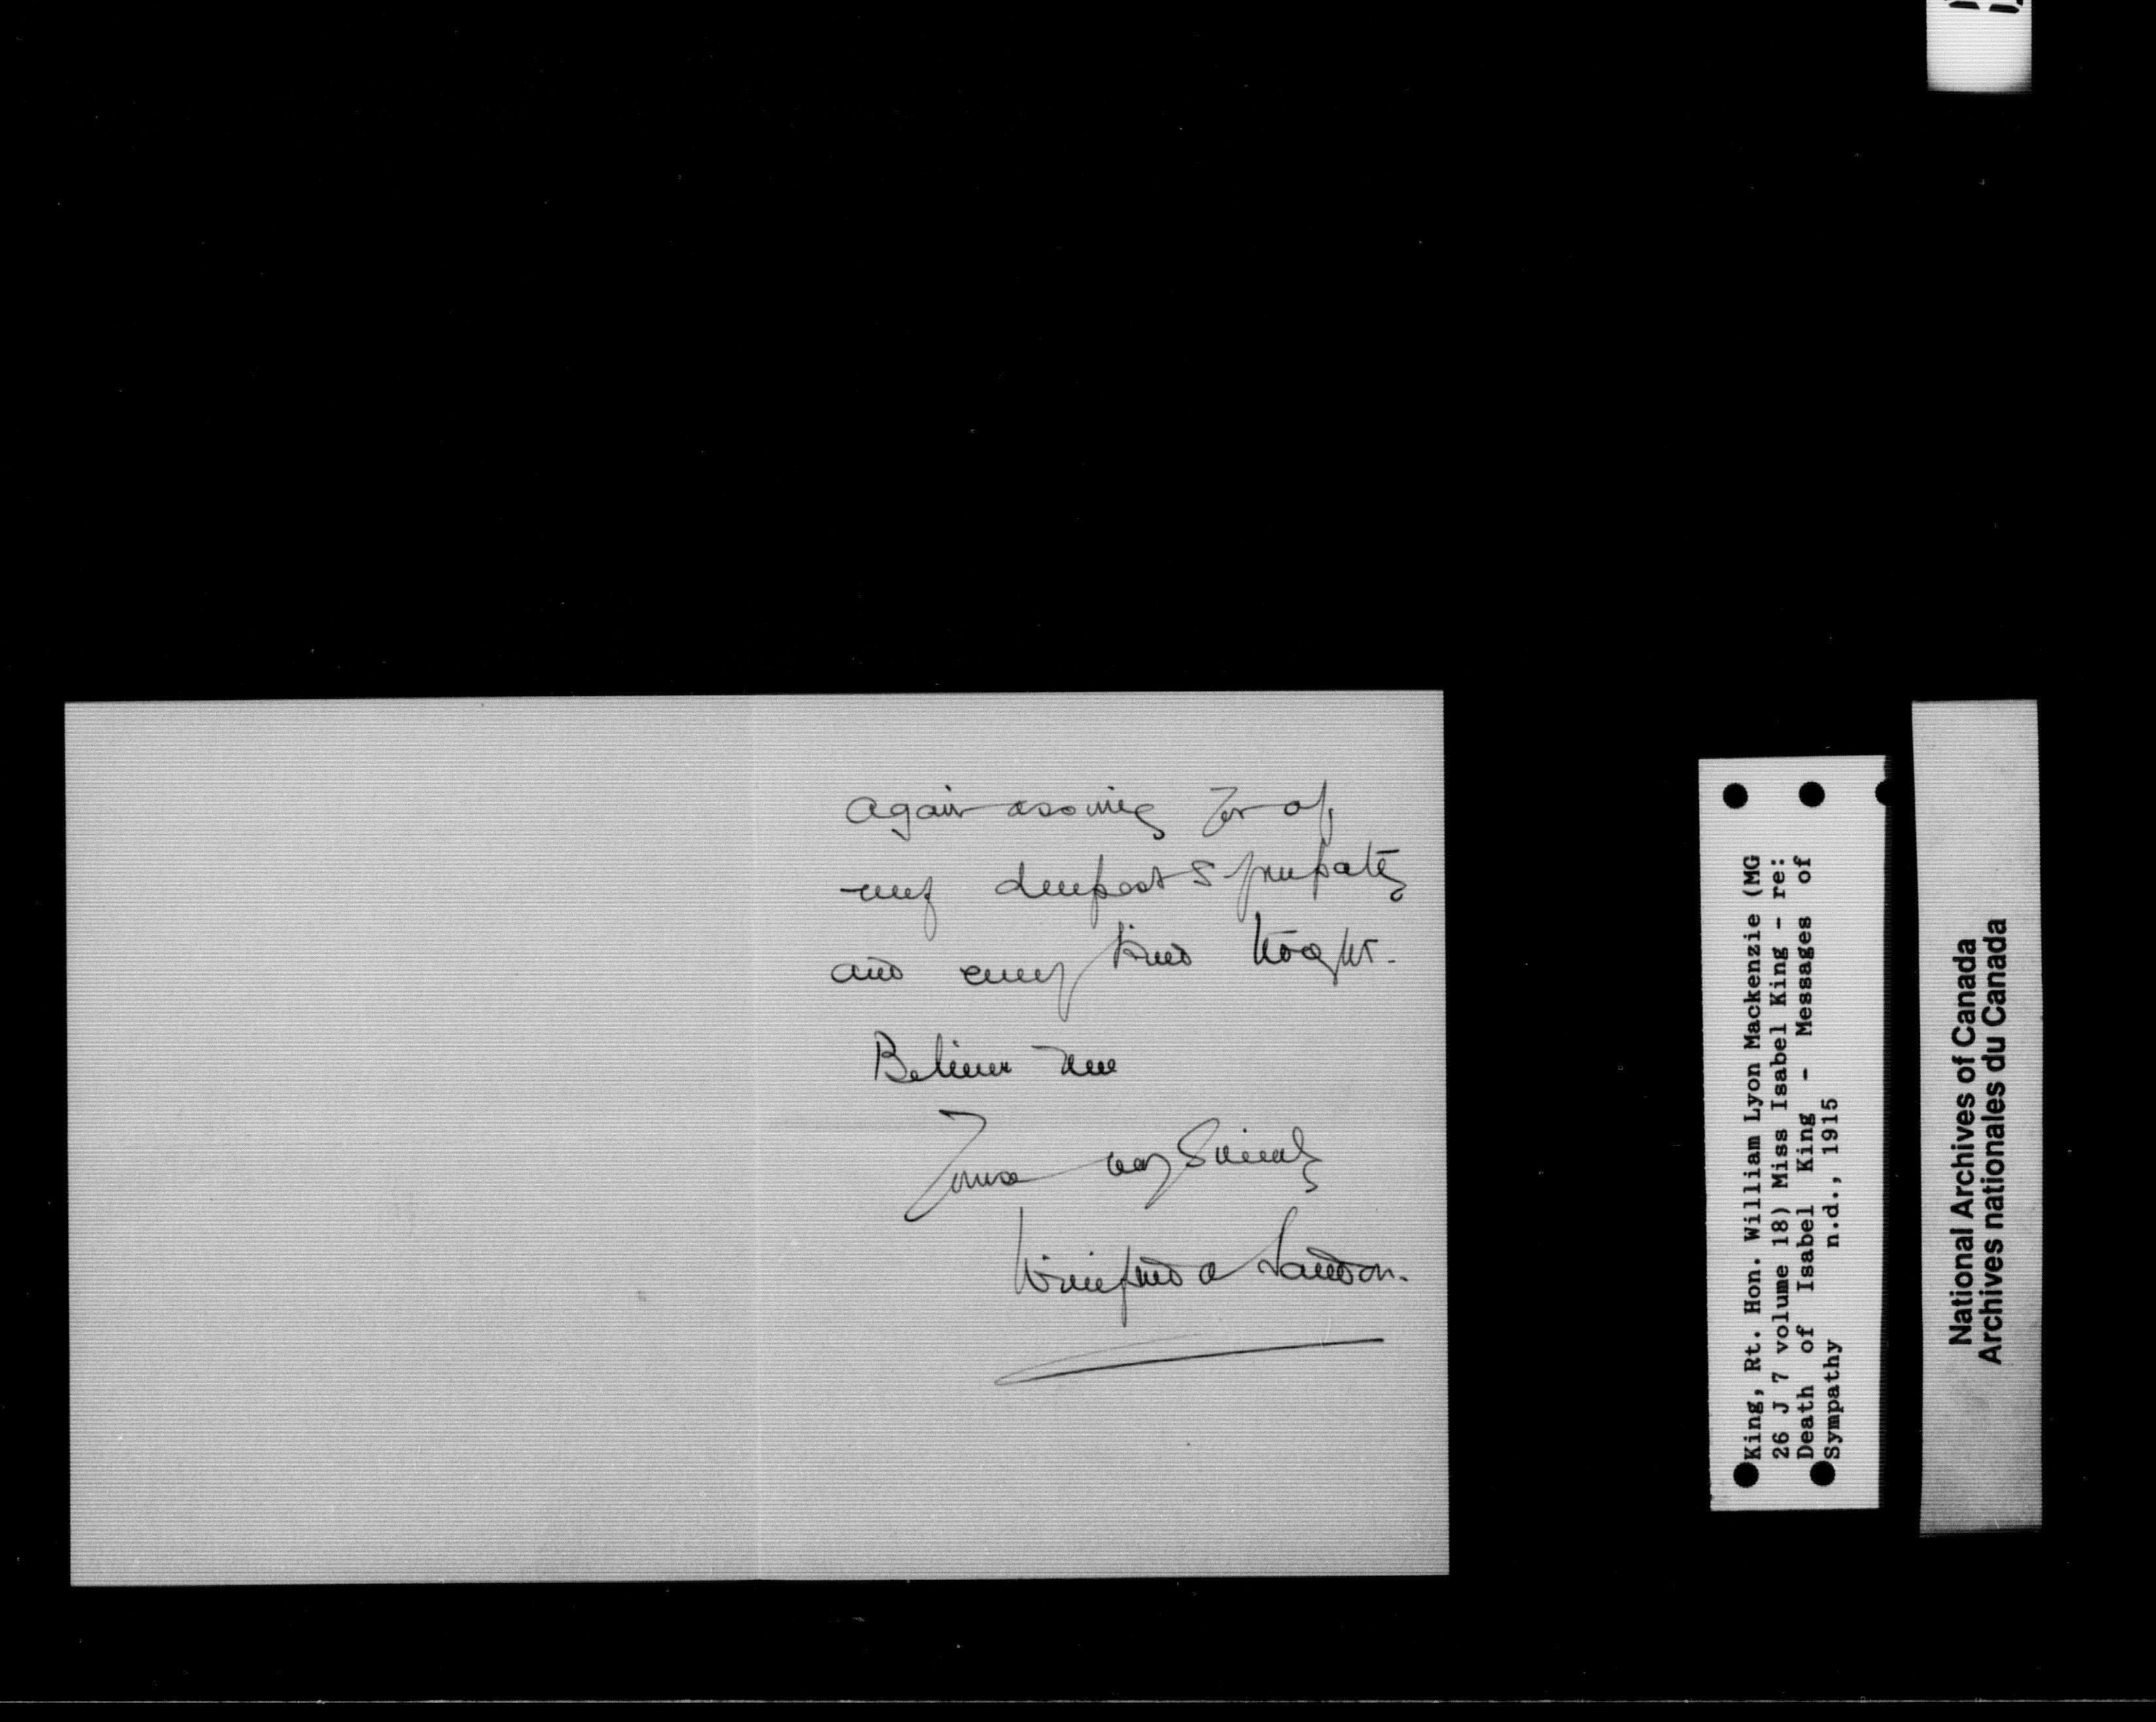 Again assuring you of
my deepest sympathy
and every kind thought.
Believe me
Yours very Sincerely
Winifred
King, Rt. Hon. William Lyon Mackenzie (MG
26 J 7 volume 18) Miss Isabel King - re:
Death of Isabel King - Messages of
Sympathy n.d., 1915
National Archives of Canada
Archives nationales du Canada